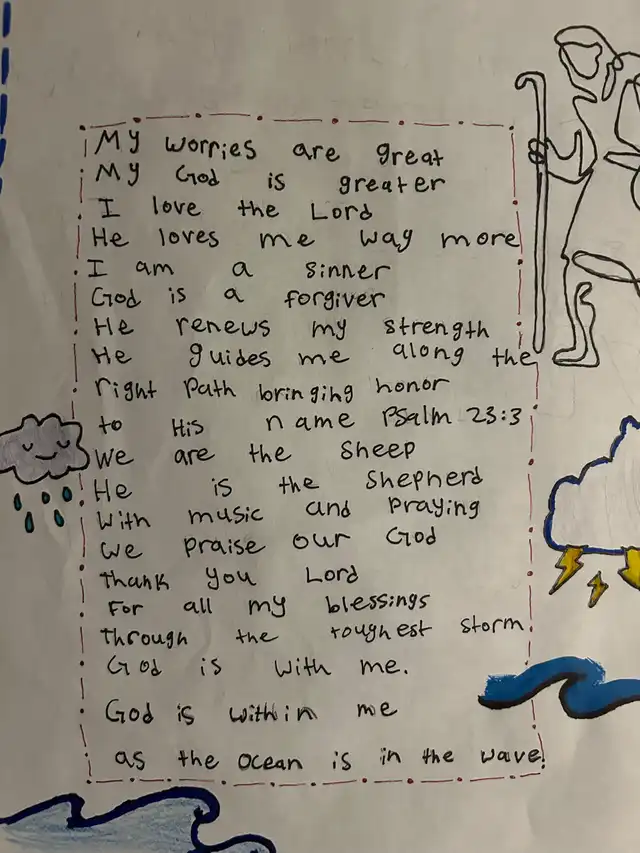 My worries are great
My God is greater
I love the Lord
He loves me way more
I am a sinner
God is a forgiver
He renews my strength
He guides me along the
right path bringing honor
to His name Psalm 23:3
We are the sheep
He is the shepherd
With music and praying
we praise our God
Thank you Lord
For all my blessings
Through the toughest storm
God is with me.
God is within me
as the ocean is in the wave!